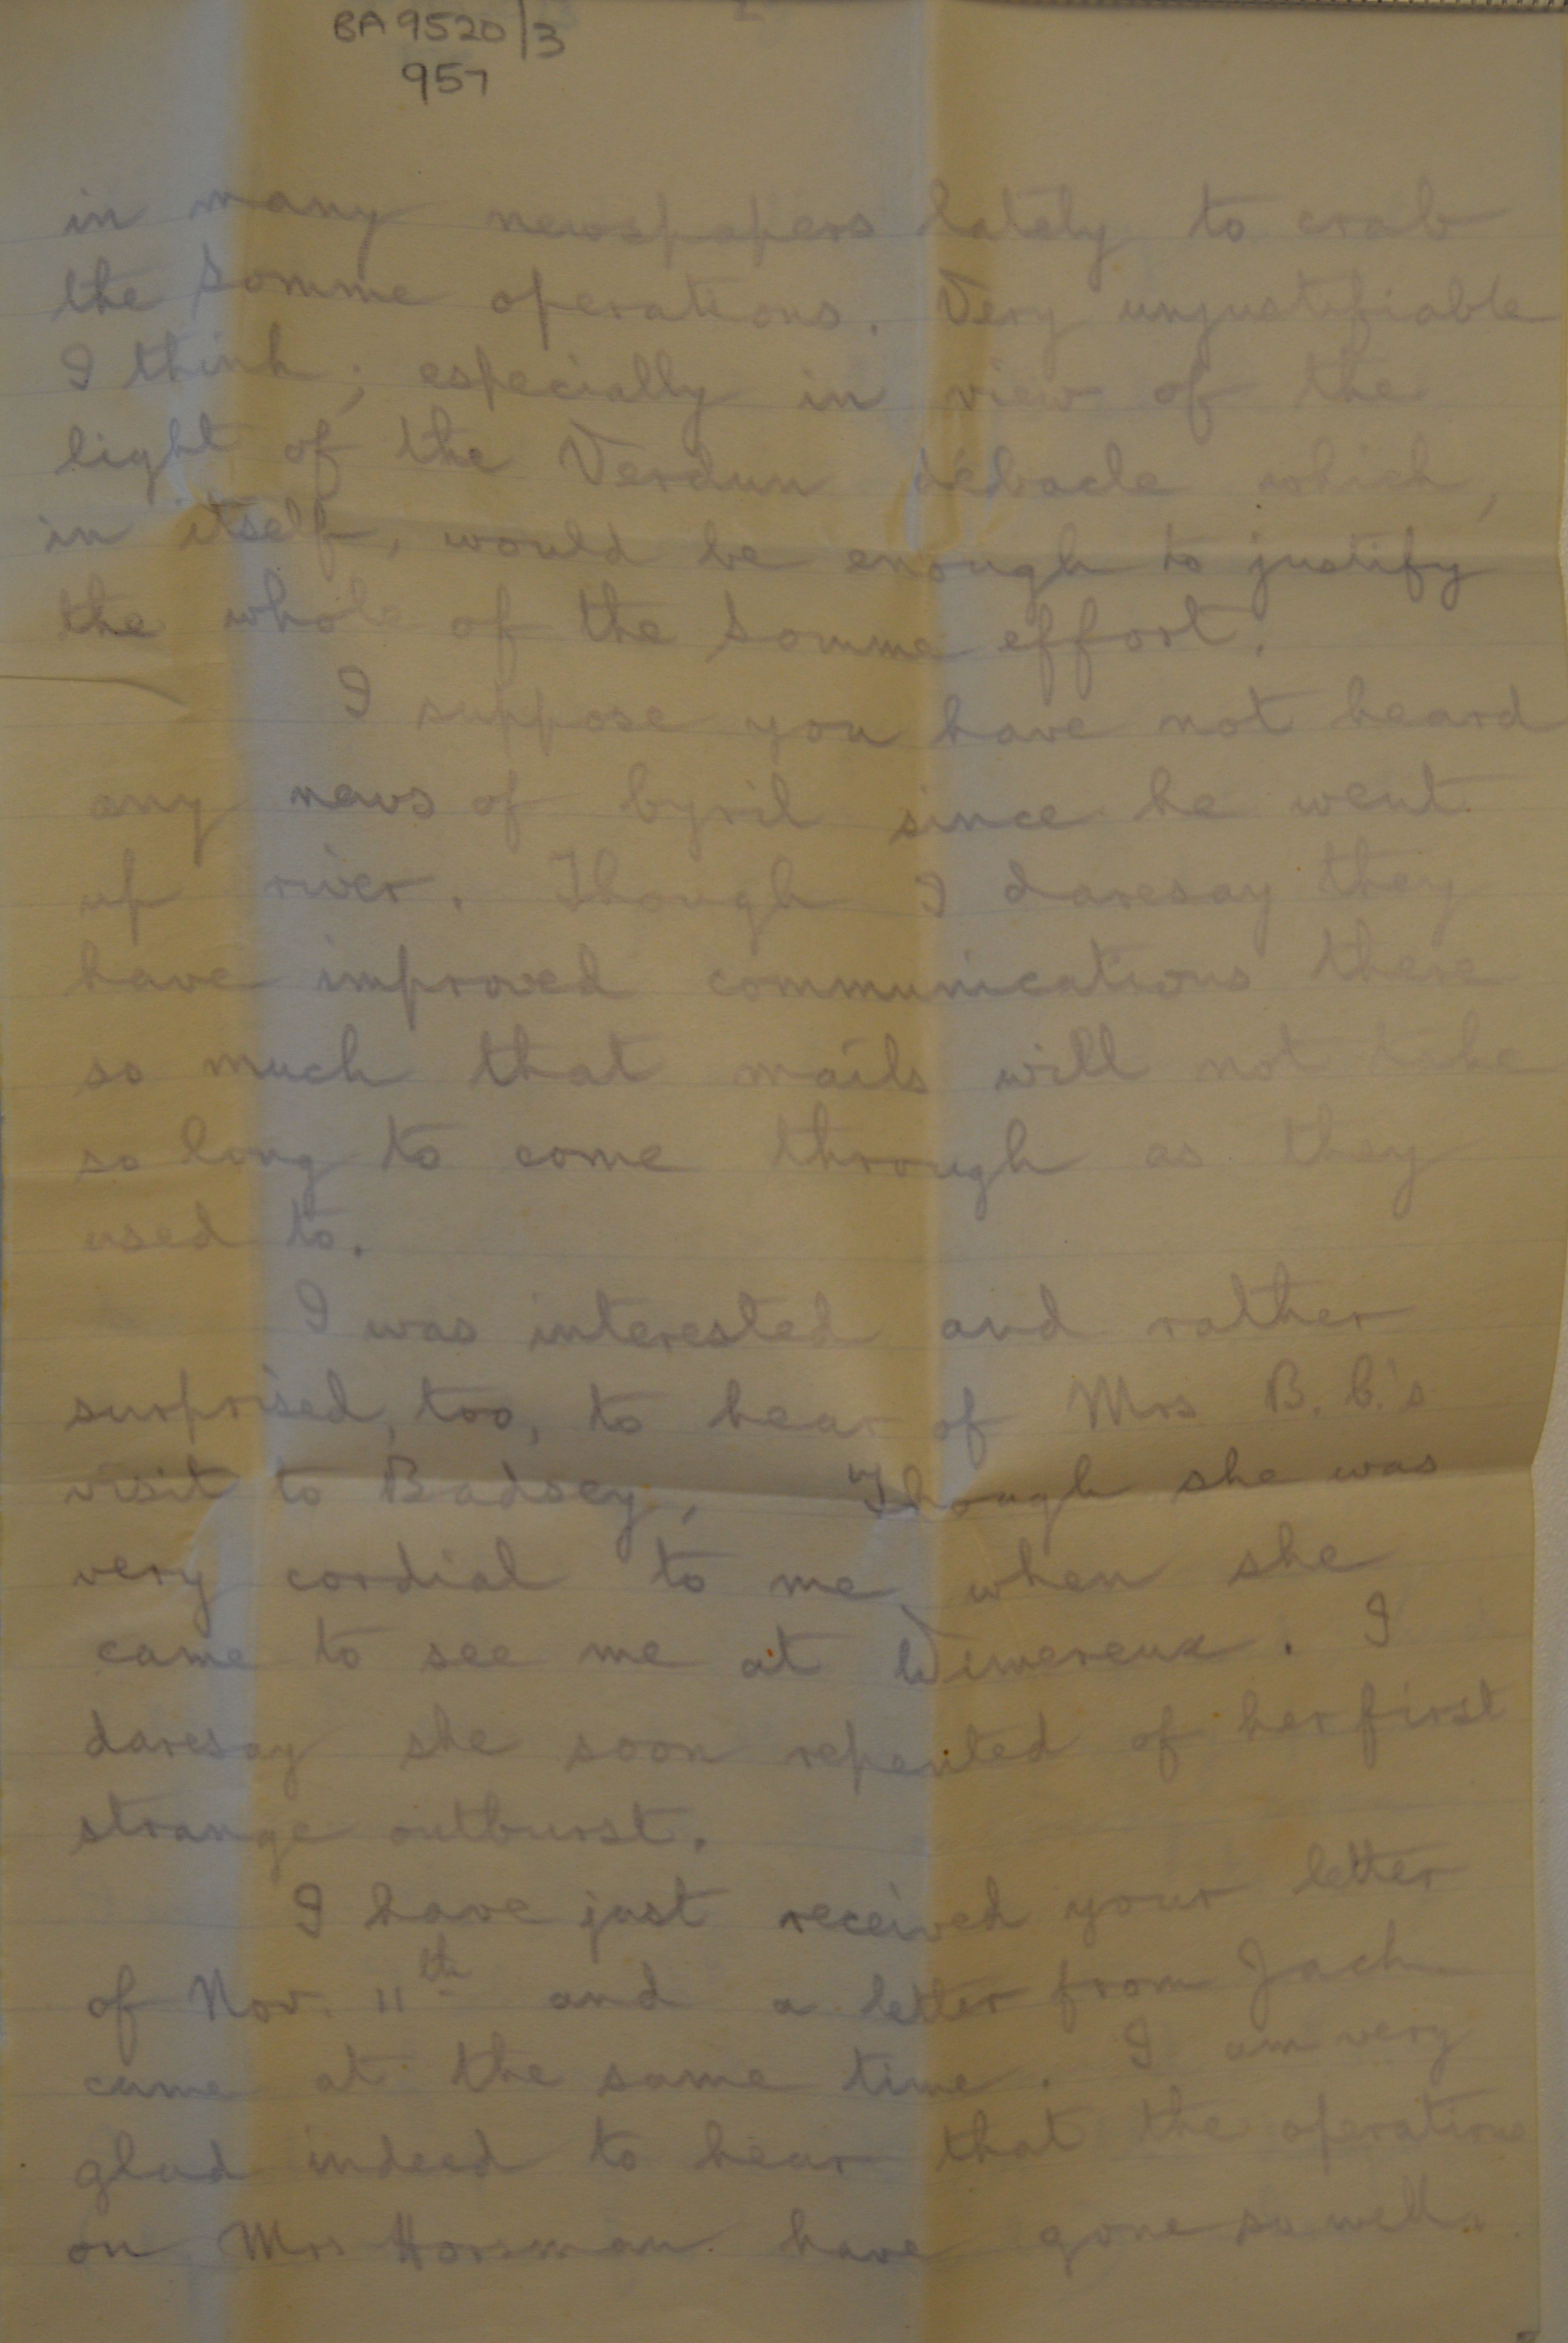 BA 9520/3
957
in many newspapers lately to crab
the Somme operations. Very unjustifiable
I think; especially in view of the
light of the Verdun débacle which,
in itself, would be enough to justify
the whole of the Somme effort.
I suppose you have not heard
any news of Cyril since he went
up river. Though I daresay they
have improved communications there
so much that mails will not take
so long to come through as they
used to.
I was interested and rather
surprised, too, to hear of Mrs B. C.'s
visit to Badsey, Though she was
very cordial to me, when she
came to see me at Wimereux. I
daresay she soon repented of her first
strange outburst.
I have just received your letter
of Nov. 11th and a letter from Jack
came at the same time. I am very
glad indeed to hear that the operations
on Mrs Horsman have gone so well.